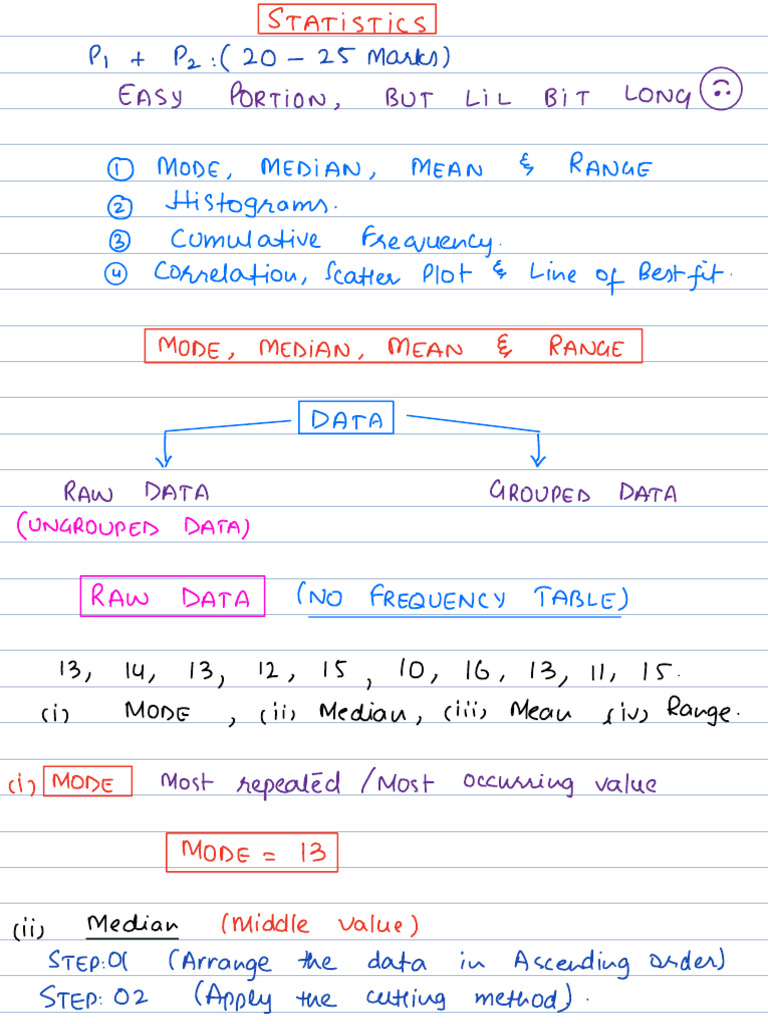 STATISTICS
P1 + P2 : ( 20 – 25 Marks)
EASY PORTION, BUT LIL BIT LONG
① MODE, MEDIAN, MEAN & RANGE
② Histograms.
③ Cumulative Frequency.
④ Correlation, Scatter Plot & Line of Best fit.
MODE, MEDIAN, MEAN & RANGE
DATA
RAW DATA GROUPED DATA
(UNGROUPED DATA)
RAW DATA (NO FREQUENCY TABLE)
13, 14, 13, 12, 15, 10, 16, 13, 11, 15.
(i) MODE, (ii) Median, (iii) Mean (iv) Range.
(i) MODE Most repeated / Most occurring value
MODE = 13
(ii) Median (Middle value)
STEP:01 (Arrange the data in Ascending order)
STEP: 02 (Apply the cutting method).